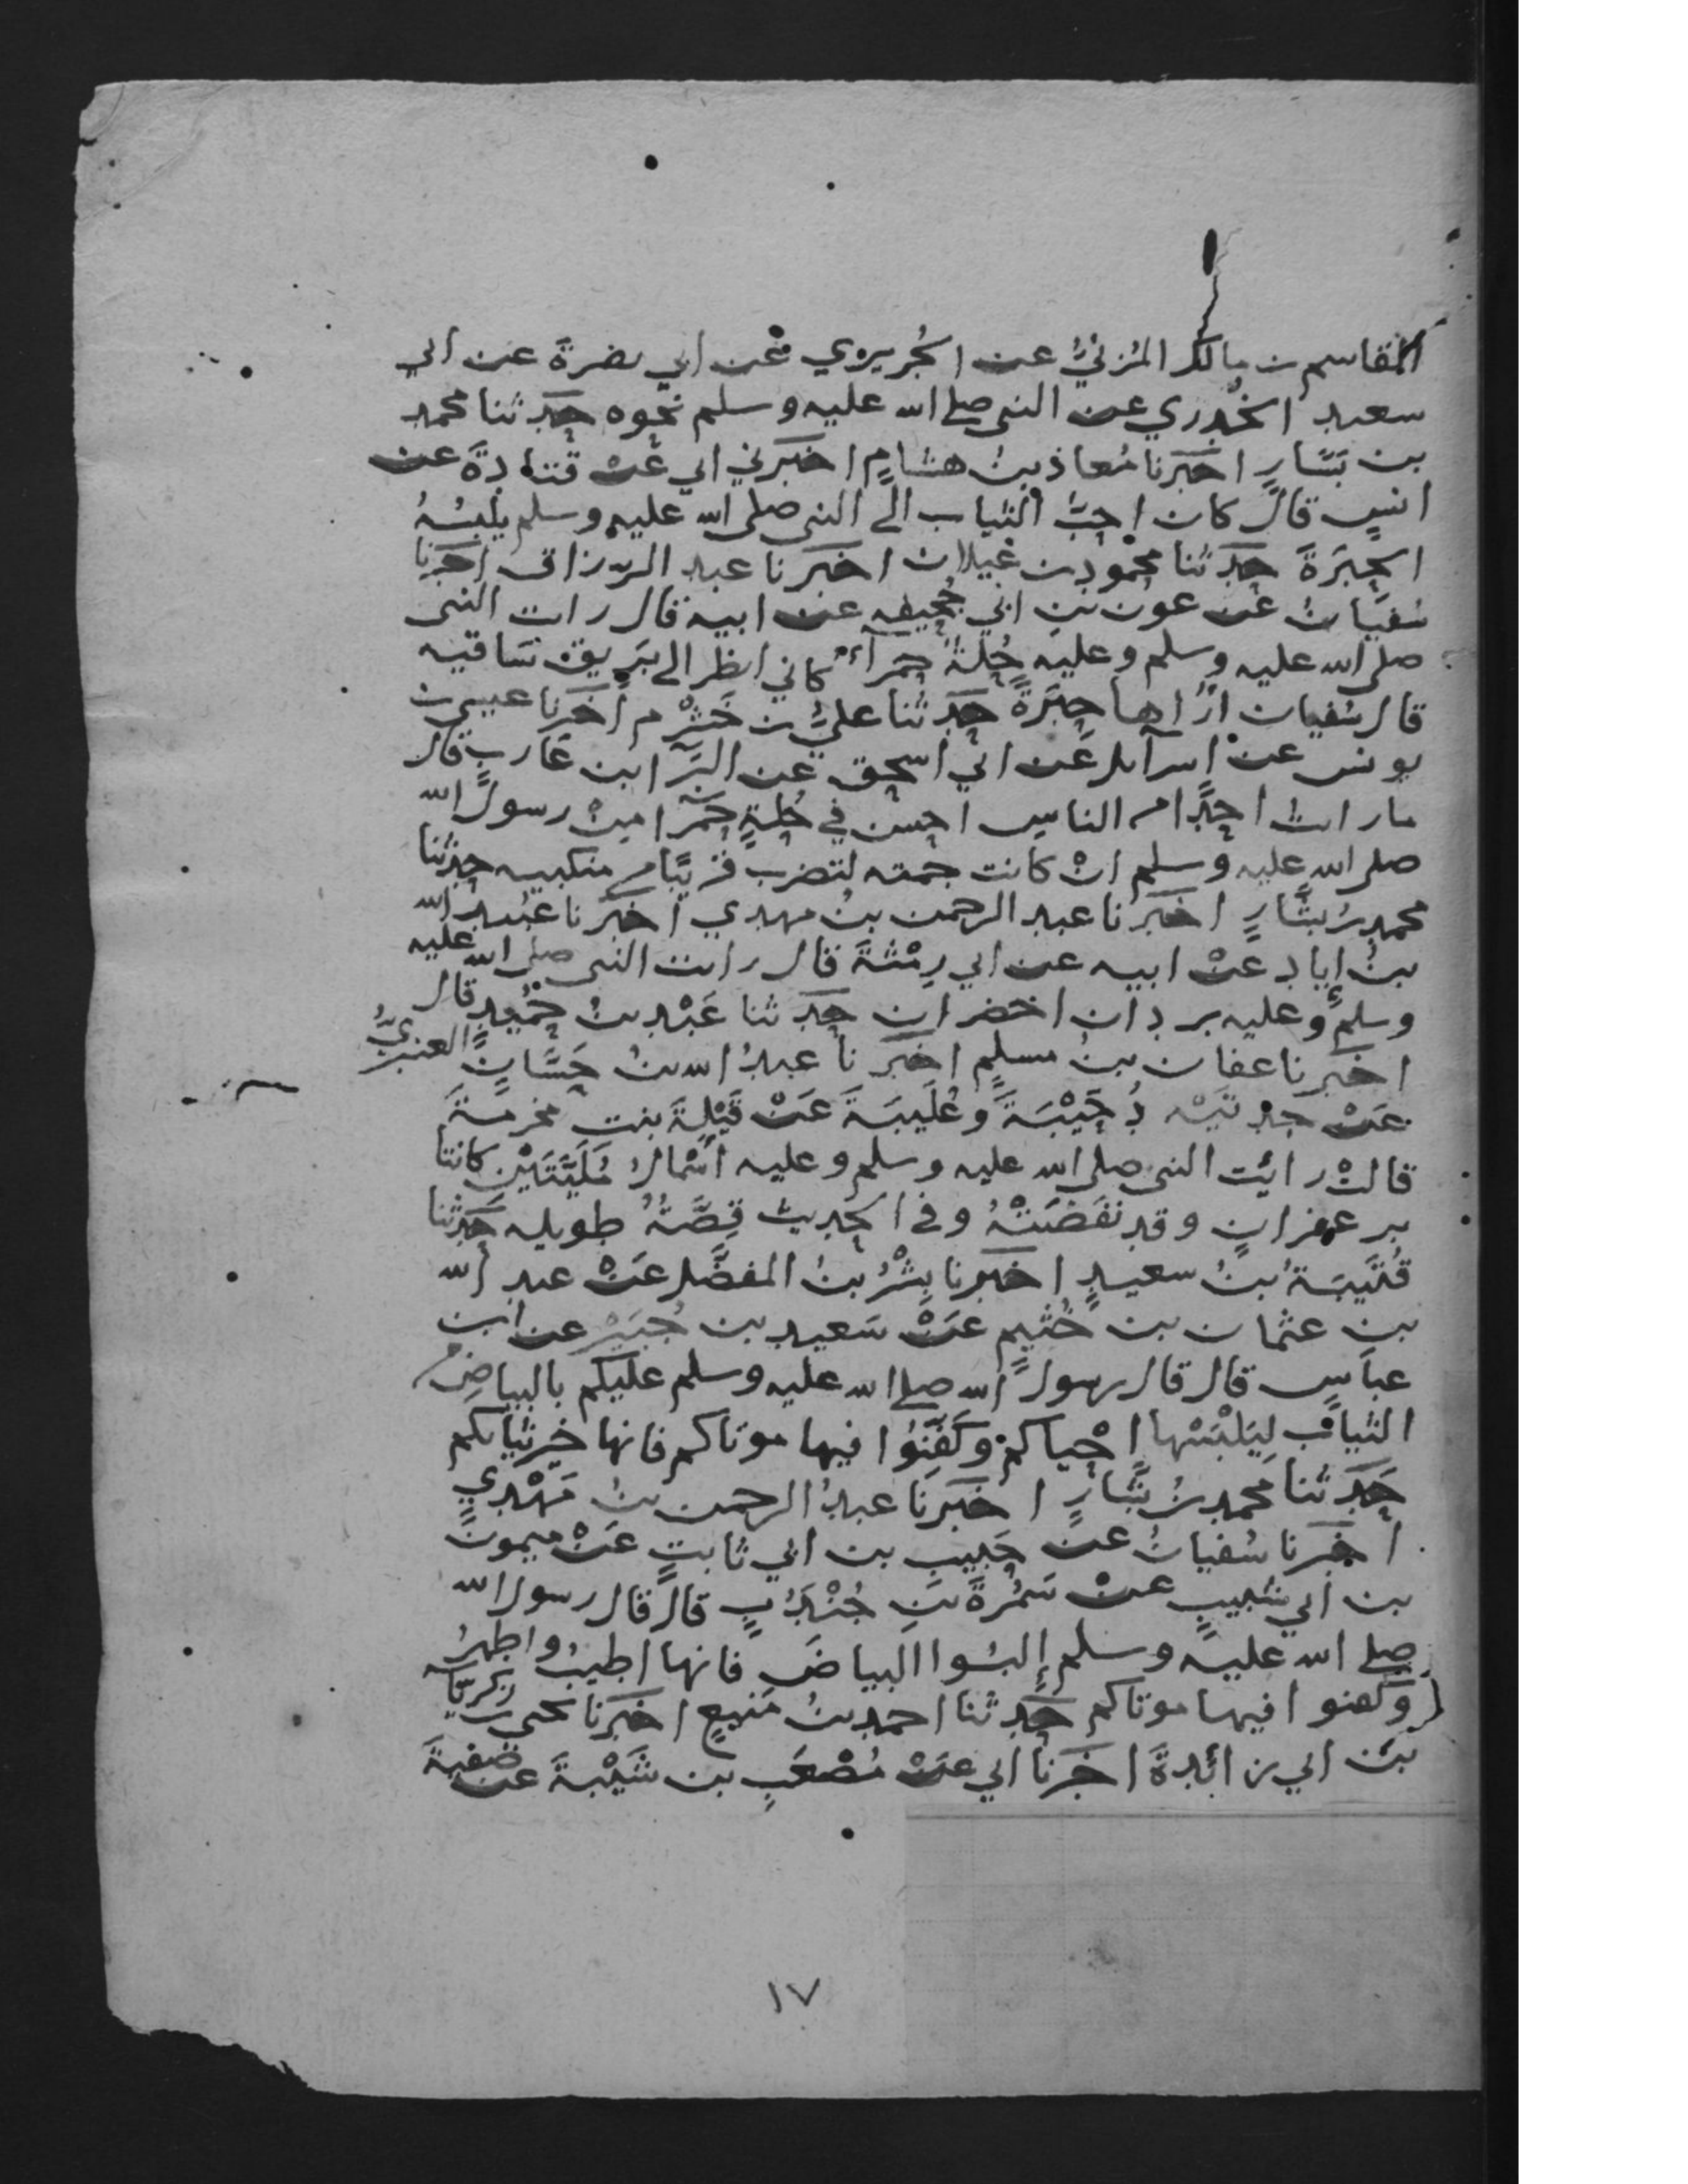 القاسم بن مالك المُزنيُّ عن الجُريري عن ابي نضرةَ عن ابي
سعيد الخُدري عن النبي صلى الله عليه وسلم نحوه حَدثنا محمد
بن بَشَّارٍ اخبَرنا مُعاذ بنُ هشامٍ اخبَرني ابي عَنْ قتادةَ عن
انسٍ قالَ كان احبَّ الثياب الى النبي صلى الله عليه وسلم يلبسُهُ
الحِبَرَةَ حَدثنا محمْود بن غَيلان اخبَرنا عبد الرزاق اخبرنا
سُفيانُ عَن عون بنِ ابي جُحيفه عن ابيه قال رايت النبي
صلى الله عليه وسلم وعليه حُلةٌ حمرآء كاني انظر الى بَريق سَاقيه
قال سُفيان اُرَاها حِبَرَةً حَدثنا عليُّ بن خَشْرم اخبَرنا عيسى بن
يونس عنْ اسرآئل عَن ابي اسحق عَن البَرآ ابن عَازبٍ قال
ما رايتُ احدًا من الناسِ احسن في حُلةٍ حَمرآ مِنْ رسول الله
صلى الله عليه وسلم انْ كانت جمته لتضرب قريبًا من منكبيه حدثنا
محمد بنُ بشَّارٍ اخبَرنا عبد الرحمن بنُ مهدي اخبَرنا عبُيد الله
بنُ إياد عنْ ابيه عن ابي رِمْثةَ قال رايت النبي صلى الله عليه
وسلم وعليه بردان اخضران حَدثنا عَبْد بنُ حُمَيدٍ قال
اخبَرنا عفان بنُ مسلمٍ اخبَرنا عبدُ الله بنُ حَسَّانٍ العنبريُّ
عَنْ جدتَيْه دُحَيْبَةَ وعُلَيبَةَ عَنْ قَيْلةَ بنت مخرمةَ
قالتْ رايَت النبي صلى الله عليه وسلم وعليه اسْمالُ مُلَيَّتَيْن كانتا
بزعفرانٍ وقد نفَضَتْهُ وفي الحديث قِصَّةٌ طويله حَدثنا
قُتَيبَةُ بنُ سعيدٍ اخبَرنا بِشْرُ بنُ المفضَّل عَنْ عبد الله
بن عثمان بن خُثيم عَنْ سَعيد بن جُبَيْر عن ابن
عباسٍ قال قال رسولُ الله صلى الله عليه وسلم عليكم بالبياضِ من
الثيابِ لِيَلْبَسْها احْياكمْ وكَفِّنُوا فيها موتاكم فانها خير ثيابكم
حَدثنا محمد بنُ بَشارٍ اخبَرنَا عبدُ الرحمن بنُ مَهْدي
اخبَرنا سُفيانُ عن حَبيبِ بن ابي ثابتٍ عَنْ ميمون
بن ابي شبيبٍ عنْ سَمُرةَ بنِ جُنْدُبٍ قال قال رسول الله
صلى الله عليه وسلم إلبسُوا البياضَ فانها اطيبُ واطهرُ
وكفنوا فيها موتاكم حَدثنا احمد بنُ مَنيعٍ اخبَرنا يحيى بن زكريَّا
بن ابي زائدةَ اخبَرنا ابي عَنْ مُصْعَبِ بن شَيْبةَ عن صَفيةَ
١٧